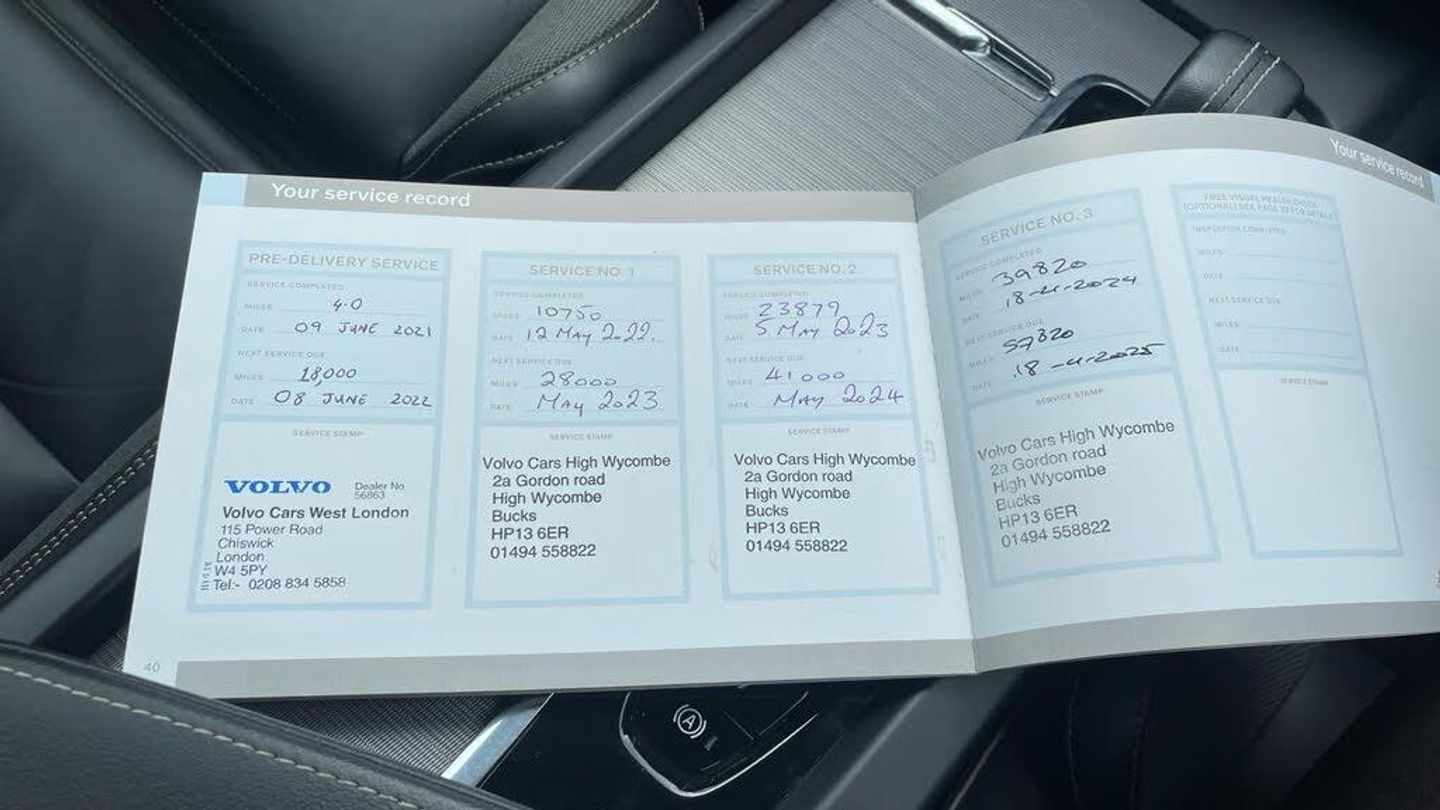 Your service record
PRE-DELIVERY SERVICE
SERVICE COMPLETED
MILES 4.0
DATE 09 JUNE 2021
NEXT SERVICE DUE
MILES 18,000
DATE 08 JUNE 2022
SERVICE STAMP
VOLVO
Dealer No.
56863
Volvo Cars West London
115 Power Road
Chiswick
London
W4 5PY
Tel:- 0208 834 5858
SERVICE NO. 1
SERVICE COMPLETED
MILES 10750
DATE 12 MAY 2022.
NEXT SERVICE DUE
MILES 28000
DATE MAY 2023
SERVICE STAMP
Volvo Cars High Wycombe
2a Gordon road
High Wycombe
Bucks
HP13 6ER
01494 558822
SERVICE NO. 2
SERVICE COMPLETED
MILES 23879
DATE 5 MAY 2023
NEXT SERVICE DUE
MILES 41000
DATE MAY 2024
SERVICE STAMP
Volvo Cars High Wycombe
2a Gordon road
High Wycombe
Bucks
HP13 6ER
01494 558822
40
Your service record
SERVICE NO. 3
SERVICE COMPLETED
MILES 39820
DATE 18-4-2024
NEXT SERVICE DUE
MILES 57820
DATE 18-4-2025
SERVICE STAMP
Volvo Cars High Wycombe
2a Gordon road
High Wycombe
Bucks
HP13 6ER
01494 558822
FREE VISUAL HEALTH CHECK
(OPTIONAL) SEE PAGE 22 FOR DETAILS
INSPECTION COMPLETED
MILES
DATE
NEXT SERVICE DUE
MILES
DATE
SERVICE STAMP
A